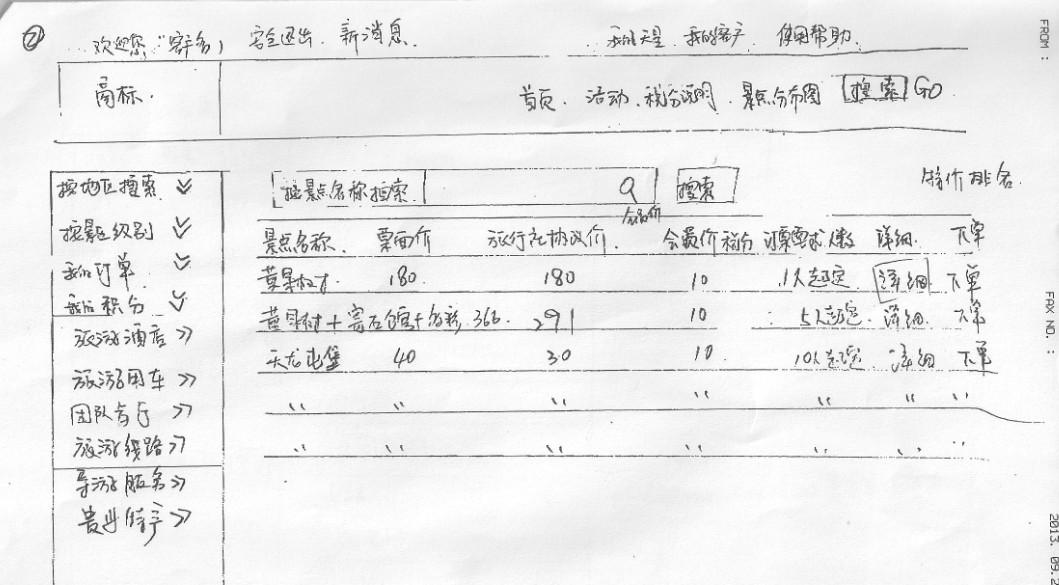 ②
欢迎您,"客户名" 安全退出 新消息. 我的 我的客户 使用帮助
商标. 首页. 活动. 积分说明. 景点分布图 搜索 GO
按地区搜索
按景区级别
我的订单
我的积分
旅游酒店 >>
旅游用车 >>
团队 >>
旅游线路 >>
导游服务 >>
贵州特产 >>
按景点名称搜索 Q 搜索 特价排名
景点名称. 票面价 旅行社协议价. 会员价 积分 订票要求人数 详细. 下单
黄果树 180. 180 10 1人起定 详细 下单
黄果树+ + 366. 291 10 5人起定 详细. 下单
天龙屯堡 40 30 10. 10人起定 详细 下单
" " " " " " "
" " " " " " "
FROM :
FAX NO. :
2013. 09.